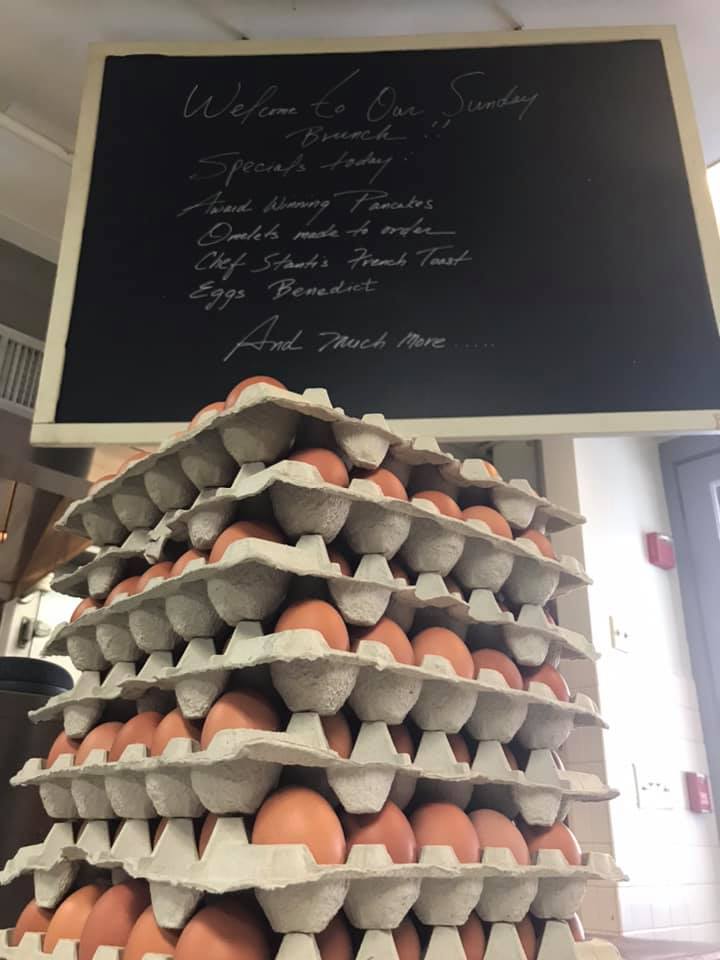 Welcome to Our Sunday
Brunch !!
Specials today:
Award Winning Pancakes
Omelets made to order
Chef Stanti's French Toast
Eggs Benedict
And much more.....